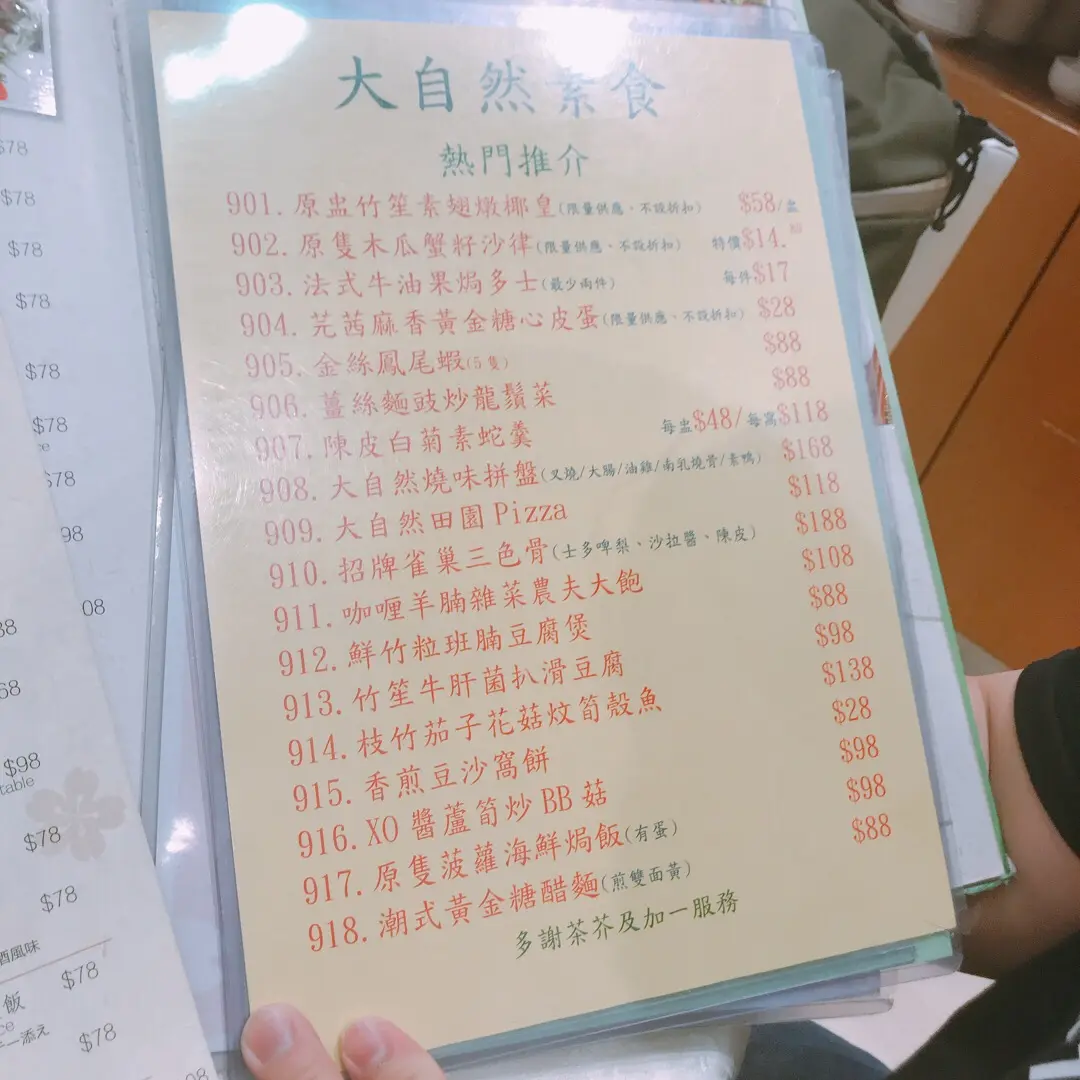 大自然素食
熱門推介
901. 原盅竹笙素翅燉椰皇(限量供應、不設折扣) $58/盅
902. 原隻木瓜蟹籽沙律(限量供應、不設折扣) 特價$14.
903. 法式牛油果焗多士(最少兩件) 每件$17
904. 芫茜麻香黃金糖心皮蛋(限量供應、不設折扣) $28
905. 金絲鳳尾蝦(5隻) $88
906. 薑絲麵豉炒龍鬚菜 $88
907. 陳皮白菊素蛇羹 每盅$48/每窩$118
908. 大自然燒味拼盤(叉燒/大腸/油雞/南乳燒骨/素鴨) $168
909. 大自然田園Pizza $118
910. 招牌雀巢三色骨(士多啤梨、沙拉醬、陳皮) $188
911. 咖喱羊腩雜菜農夫大飽 $108
912. 鮮竹粒班腩豆腐煲 $88
913. 竹笙牛肝菌扒滑豆腐 $98
914. 枝竹茄子花菇炆筍殼魚 $138
915. 香煎豆沙窩餅 $28
916. XO醬蘆筍炒BB菇 $98
917. 原隻菠蘿海鮮焗飯(有蛋) $98
918. 潮式黃金糖醋麵(煎雙面黃) $88
多謝茶芥及加一服務
$78
$78
$78
$78
$78
$78
$78
98
08
38
68
$98
table
$78
$78
酒風味
$78
飯
ce
一添え
$78
08